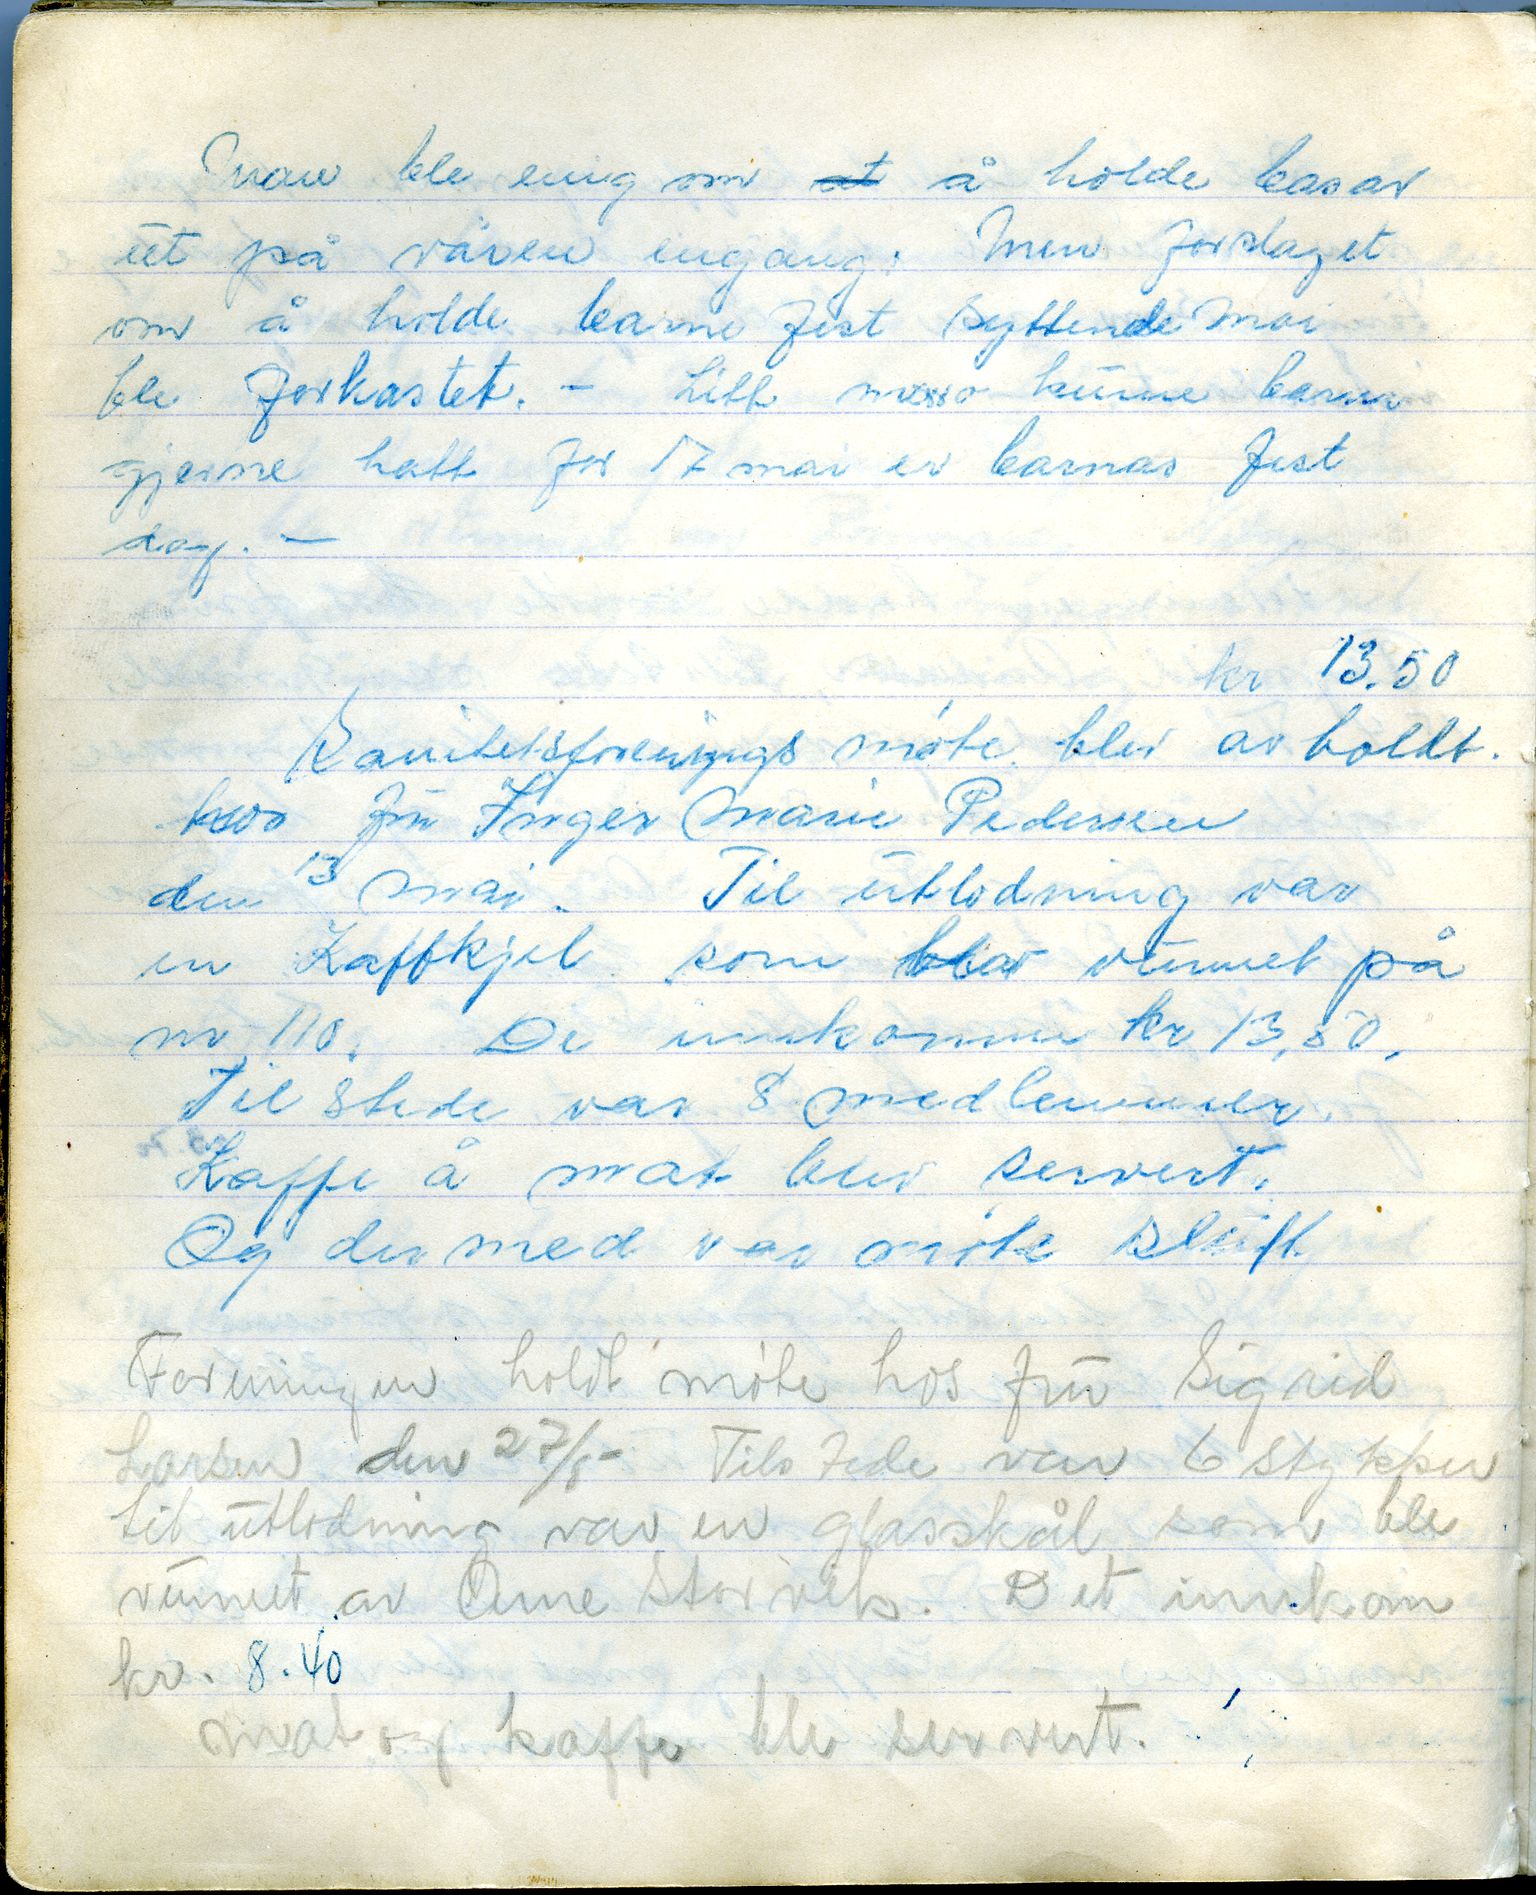 Man ble enig om ~~at~~ å holde basar
ut på våren engang. Men forslaget
om å holde barne fest syttende mai
ble forkastet. – Litt moro kunne barna
gjerne hatt for 17 mai er barnas fest
dag. –
kr 13.50
Sanitetsforenings møte blev av holdt.
hos fru Inger Marie Pedersen
den 13 mai. Til utlodning var
en Kaffkjel som blev vunnet på
nr 110. De innkomne kr 13,50.
Til stede var 8 medlemmer.
Kaffe å mat blev servert.
Og dermed var møte slutt
Foreningen holdt møte hos fru Sigrid
Larsen den 27/8- Tilstede var 6 stykker
til utlodning var en glasskål som ble
vunnet av Arne Storvik. Det innkom
kr. 8.40
mat og kaffe ble servert.